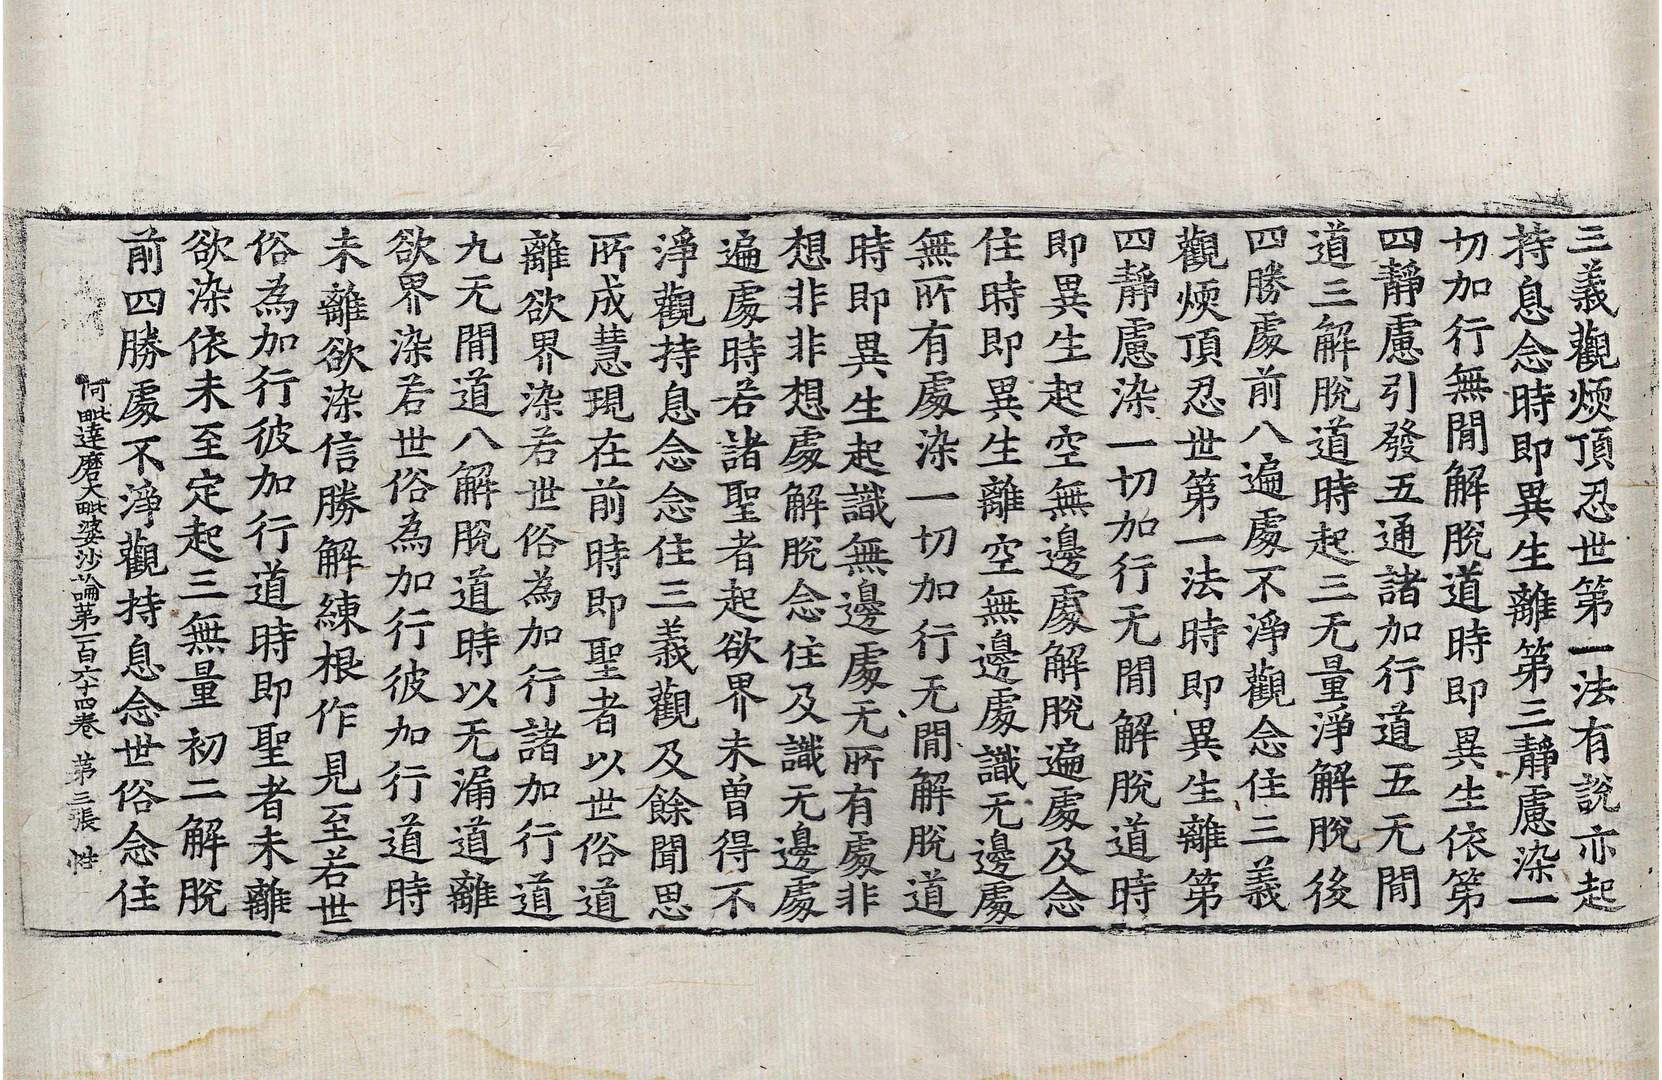 三義觀煗頂忍世第一法有說亦起
持息念時即異生離第三靜慮染一
切加行無閒解脫道時即異生依第
四靜慮引發五通諸加行道五无閒
道三解脫道時起三无量淨解脫後
四勝處前八遍處不淨觀念住三義
觀煗頂忍世第一法時即異生離第
四靜慮染一切加行无閒解脫道時
即異生起空無邊處解脫遍處及念
住時即異生離空無邊處識无邊處
無所有處染一切加行无閒解脫道
時即異生起識無邊處无所有處非
想非非想處解脫念住及識无邊處
遍處時若諸聖者起欲界未曾得不
淨觀持息念念住三義觀及餘聞思
所成慧現在前時即聖者以世俗道
離欲界染若世俗為加行諸加行道
九无閒道八解脫道時以无漏道離
欲界染若世俗為加行彼加行道時
未離欲染信勝解練根作見至若世
俗為加行彼加行道時即聖者未離
欲染依未至定起三無量初二解脫
前四勝處不淨觀持息念世俗念住
阿毗達磨大毗婆沙論第一百六十四卷 第三張